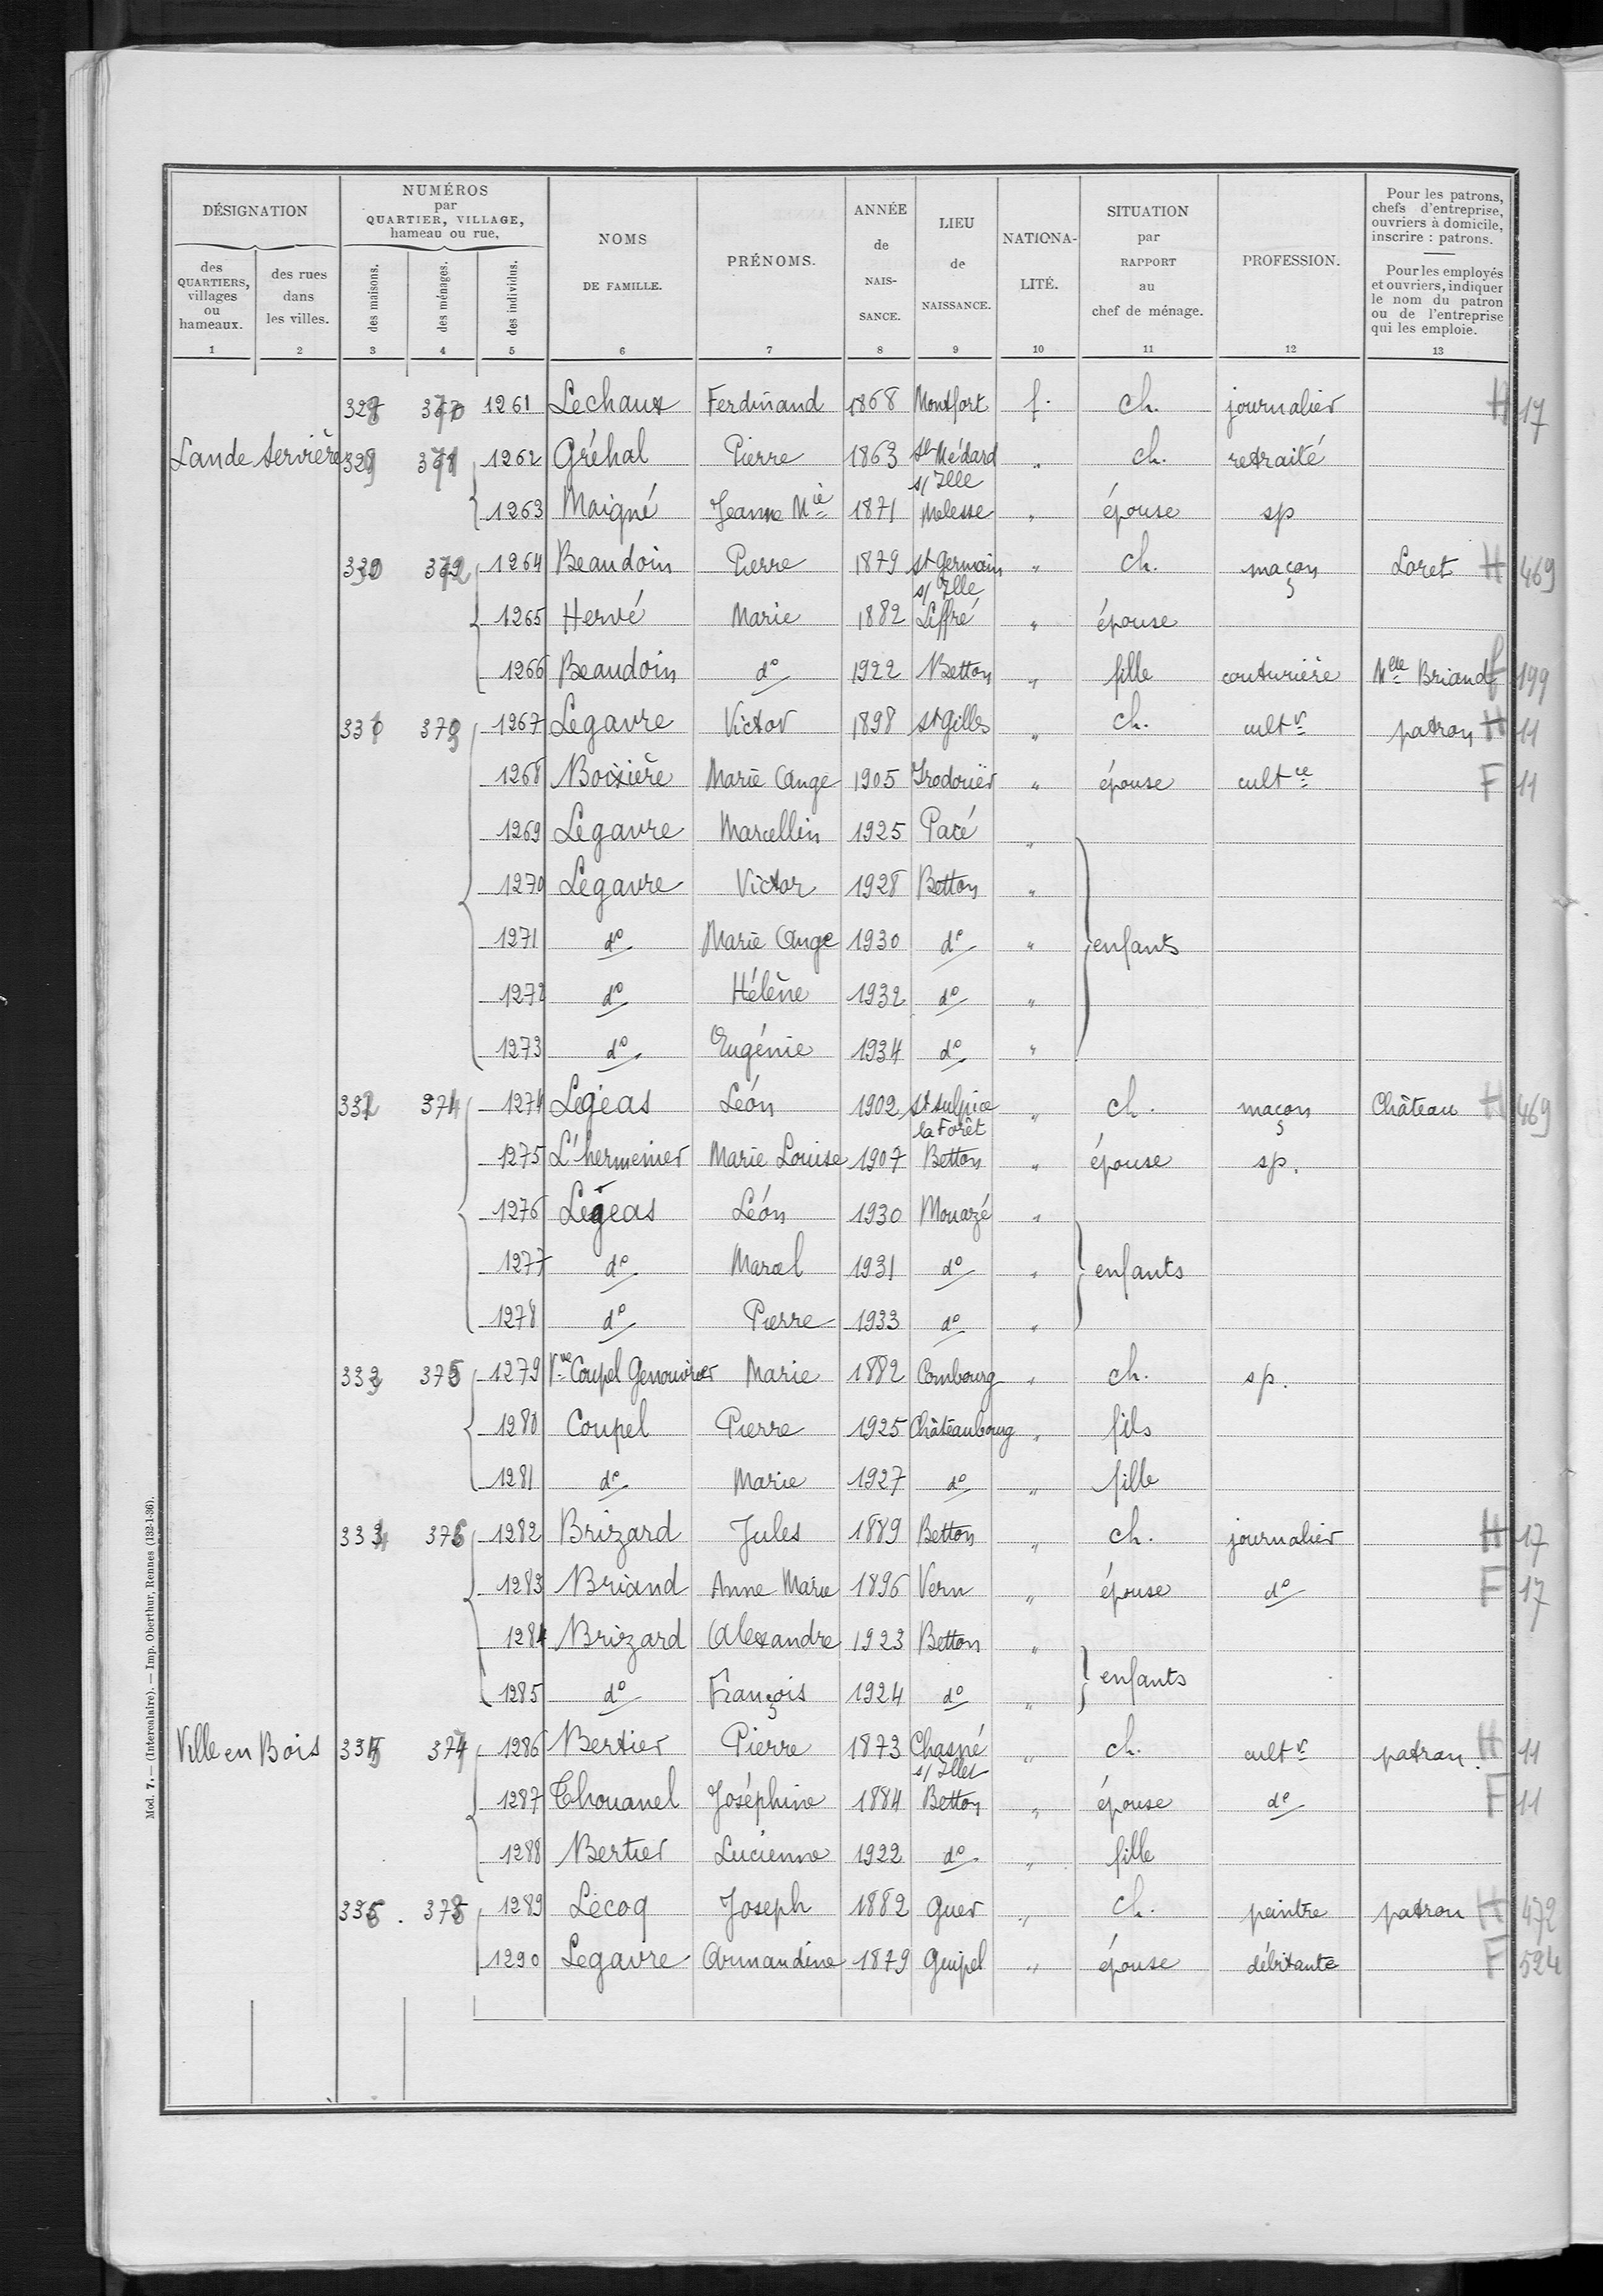 DÉSIGNATION
des QUARTIERS, villages ou hameaux.
des rues dans les villes.
NUMÉROS par QUARTIER, VILLAGE, hameau ou rue.
des maisons.
des ménages.
des individus.
NOMS DE FAMILLE.
PRÉNOMS.
ANNÉE de NAIS-SANCE.
LIEU de NAISSANCE.
NATIONA-LITÉ.
SITUATION par RAPPORT au chef de ménage.
PROFESSION.
Pour les patrons, chefs d'entreprise, ouvriers à domicile, inscrire : patrons.
Pour les employés et ouvriers, indiquer le nom du patron ou de l'entreprise qui les emploie.
1 2 3 4 5 6 7 8 9 10 11 12 13
328 370 1261 Lechaux Ferdinand 1868 Montfort f. ch. journalier H 17
Lande Servière 329 371 1262 Gréhal Pierre 1863 St Médard s/ Ille " ch. retraité
1263 Maigné Jeanne Mie 1871 Melesse " épouse sp
330 372 1264 Beaudoin Pierre 1879 St Germain s/ Ille " ch. maçon Loret H 469
1265 Hervé Marie 1882 Liffré " épouse
1266 Beaudoin do 1922 Betton " fille couturière Melle Briand f 199
331 373 1267 Legavre Victor 1898 St Gilles " ch. cultr patron H 11
1268 Boixière Marie Ange 1905 Irodouër " épouse cultce F 11
1269 Legavre Marcellin 1925 Pacé "
1270 Legavre Victor 1928 Betton "
1271 do Marie Ange 1930 do " enfants
1272 do Hélène 1932 do "
1273 do Eugénie 1934 do "
332 374 1274 Legéas Léon 1902 St Sulpice la Forêt " ch. maçon Château H 469
1275 L'hermenier Marie Louise 1907 Betton " épouse sp.
1276 Legeas Léon 1930 Mouazé "
1277 do Marcel 1931 do " enfants
1278 do Pierre 1933 do "
333 375 1279 Vve Coupel Marie 1882 Combourg " ch. sp.
1280 Coupel Pierre 1925 Châteaubourg " fils
1281 do Marie 1927 do " fille
334 376 1282 Brizard Jules 1889 Betton " ch. journalier H 17
1283 Briand Anne Marie 1896 Vern " épouse do F 17
1284 Brizard Alexandre 1923 Betton "
1285 do François 1924 do " enfants
Ville en Bois 335 377 1286 Bertier Pierre 1873 Chasné s/ Illet " ch. cultr patron. H 11
1287 Thouanel Joséphine 1884 Betton " épouse do F 11
1288 Bertier Lucienne 1922 do " fille
336. 378 1289 Lecoq Joseph 1882 Guer " ch. peintre patron H 472
1290 Legavre Armandine 1879 Guipel " épouse débitante F 524
Mod. 7. — (Intercalaire). — Imp. Oberthur, Rennes (132-1-36).